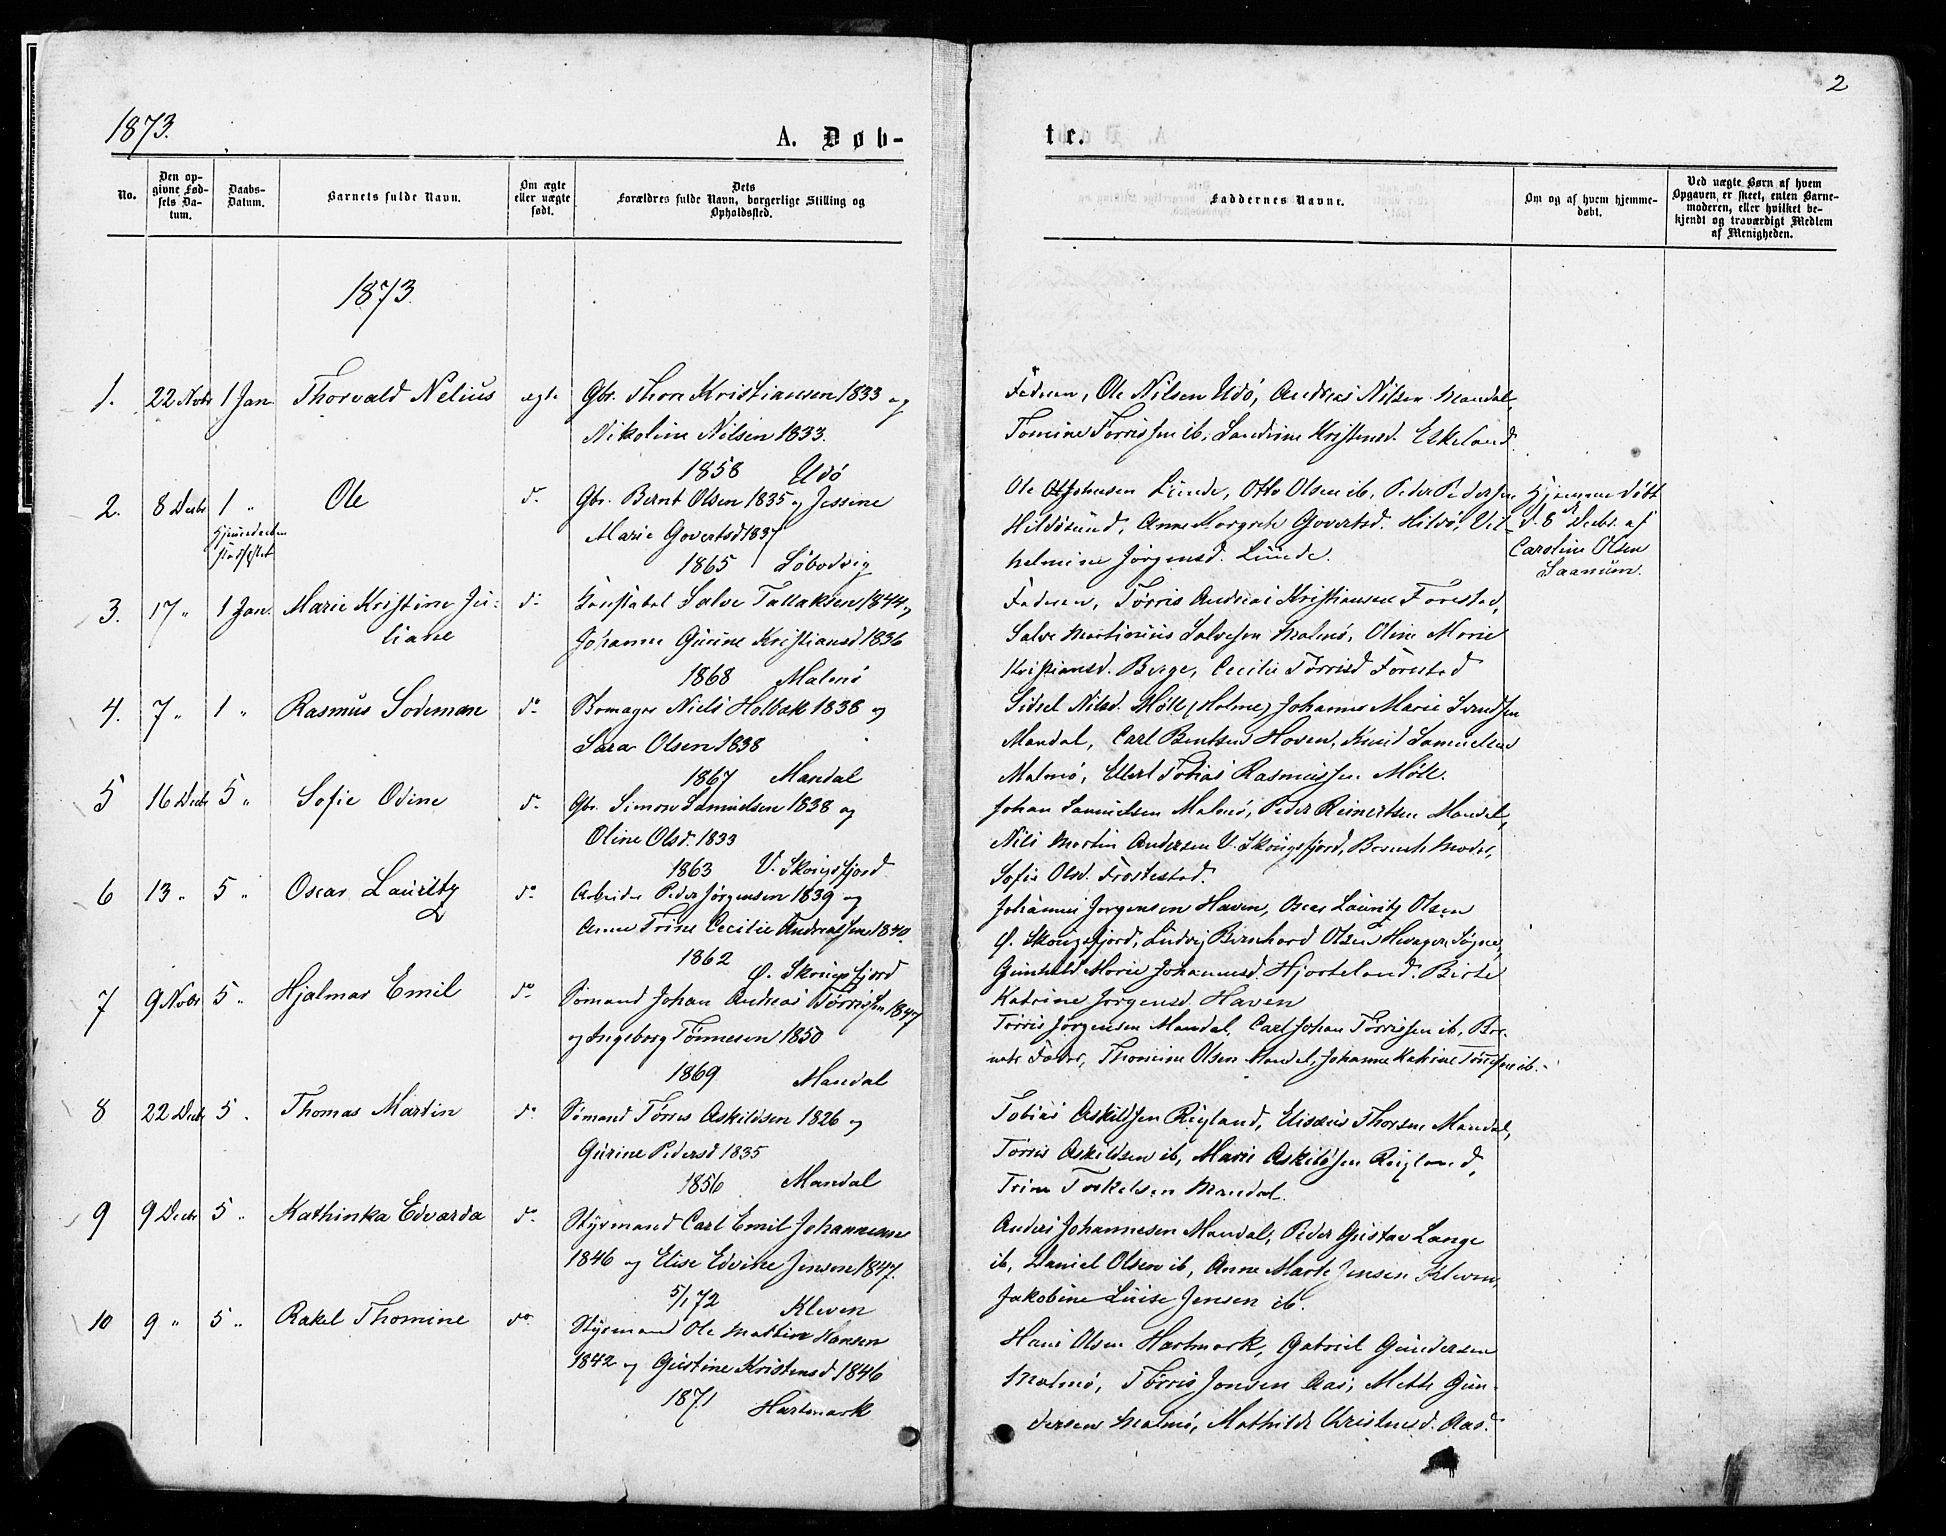 2
1873.
A. Døb-
ter.
No.
Den op-
givne Fød-
sels Da-
tum.
Daabs-
Datum.
Barnets fulde Navn.
Om ægte
eller uægte
født.
Dets
Forældres fulde Navn, borgerlige Stilling og
Opholdssted.
Faddernes Navne.
Om og af hvem hjemme-
døbt.
Ved uægte Børn af hvem
Opgaven er skeet, enten Barne-
moderen, eller hvilket be-
kjendt og troværdigt Medlem
af Menigheden.
1873.
1. 22 Novbr 1 Jan. Thorvald Nelius ægte Gbr. Thore Kristiansen 1833 og
Nikoline Nilsen 1833.
1858 Udø
Faderen, Ole Nilsen Udø, Andreas Nilsen Mandal,
Tomine Tørrissen ib, Sandrine Kristensd. Eskeland.
2. 8 Decbr 1 " Ole do Gbr. Bernt Olsen 1835 og Jessine
Marie Govertsd 1837
1865
Ole Johnsen Lunde, Otto Olsen ib, Peder Pedersen
Hildøsund, Anne Margrete Govertsd. Hildø, Vil-
helmine Jørgensd. Lunde.
Hjemmedøbt
d. 8de Decbr. af
Caroline Olsen
Saanum.
3. 17 " 1 Jan. Marie Kristine Ju-
liane
do Konstabel Salve Tallaksen 1844 og
Johanne Gurine Kristiansd 1836
1868 Malmø
Faderen, Tørris Andreas Kristiansen Forestad,
Salve Martinius Salvesen Malmø, Oline Marie
Kristiansd. Berge, Cecilie Tørrisd Forestad
4. 7 " 1 " Rasmus Sodeman do Niels Holbæk 1838 og
Sara Olsen 1838
1867 Mandal
Sidsel Nilsd. Møll (Holme) Johanne Marie Svendsen
Mandal, Carl Bentsen Hoven, Knud Samuelsen
Malmø, Ellert Tobias Rasmussen Møll.
5 16 Decbr 5 " Sofie Odine do Gbr. Simon Samuelsen 1838 og
Oline Olsd. 1833
1863 V. Skogsfjord
Johan Samuelsen Malmø, Peder Reinertsen Mandal,
Nils Martin Andersen V. Skogsfjord, Barnets Moder,
Sofie Olsd. Frostestad.
6 13 " 5 " Oscar Lauritz do Arbeider Peder Jørgensen 1839 og
Anne Trine Cecilie Andreassen 1840.
1862
Ø. Skogsfjord
Johannes Jørgensen Haven, Oscar Lauritz Olsen
Ø. Skogsfjord, Ludvig Bernhard Olsen Søgne,
Gunhild Marie Johannesd. Hjorteland. Birte
Katrine Jørgensd. Haven
7 9 Novbr 5 " Hjalmar Emil do Sømand Johan Andreas Tørrissen 1847
og Ingeborg Tønnesen 1850
1869 Mandal
Tørris Jørgensen Mandal, Carl Johan Tørrissen ib, Bar-
nets Fader, Thomine Olsen Mandal, Johanne Katrine Tørrissen ib.
8 22 Decbr 5 " Thomas Martin do Sømand Tørres Askildsen 1826 og
Gurine Pedersd 1835
1856 Mandal
Tobias Askildsen Rigland, Elisæus Thorsen Mandal,
Tørris Askildsen ib, Marie Askildsen Rigland,
Trine Torkelsen Mandal.
9 9 Decbr 5 " Kathinka Edvarda do Styrmand Carl Emil Johannesen
1846 og Elise Edvine Jensen 1847.
5/1 72 Kleven
Anders Johannesen Mandal, Peder Gustav Lange
ib, Daniel Olsen ib, Anne Marte Jensen Kleven,
Jakobine Luise Jensen ib.
10 9 " 5 " Rakel Thomine do Styrmand Ole Martin Hansen
1842 og Gustine Kristensd 1846
1871 Hartmark
Hans Olsen Hartmark, Gabriel Gundersen
Malmø, Tørris Jonsen Aas, Mette Gun-
dersen Malmø, Mathilde Kristensd. Aas.